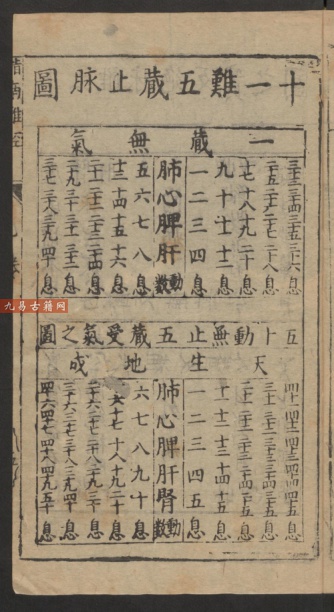 十一難五藏止脉圖
一藏無氣
三十三三十四三十五三十六息
二十五二十六二十七二十八息
十七十八十九二十息
九十十一十二息
一二三四息
肺心脾肝動數
五六七八息
十三十四十五十六息
二十一二十二二十三二十四息
二十九三十三十一三十二息
三十七三十八三十九四十息
五十動無止五藏受氣之圖
天生地成
四十一四十二四十三四十四四十五息
三十一三十二三十三三十四三十五息
二十一二十二二十三二十四二十五息
十一十二十三十四十五息
一二三四五息
肺心脾肝腎動數
六七八九十息
十六十七十八十九二十息
二十六二十七二十八二十九三十息
三十六三十七三十八三十九四十息
四十六四十七四十八四十九五十息
九易古籍网